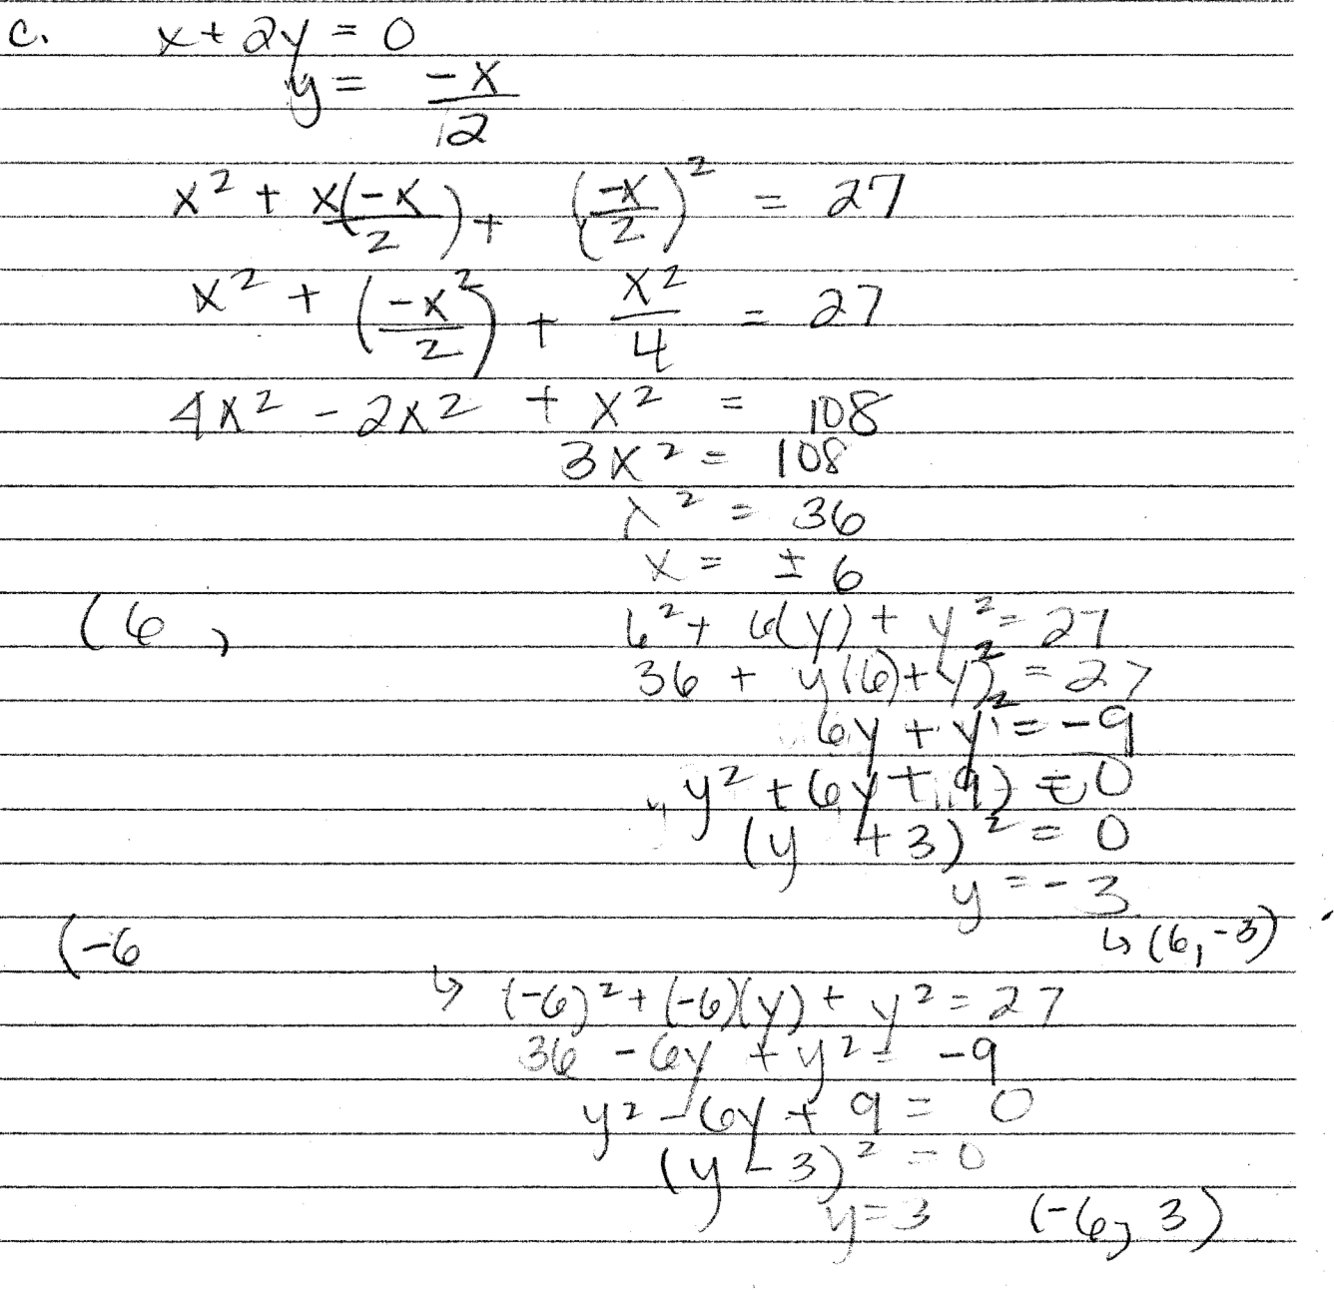 c. x + 2y = 0
y = -x/12
x² + x(-x/2) + (-x/2)² = 27
x² + (-x²/2) + x²/4 = 27
4x² - 2x² + x² = 108
3x² = 108
x² = 36
x = ± 6
(6 , 6² + 6(y) + y² = 27
36 + y(6) + y² = 27
6y + y² = -9
y² + 6y + 9) = 0
(y + 3)² = 0
y = -3
↳ (6, -3)
(-6
↳ (-6)² + (-6)(y) + y² = 27
36 - 6y + y² = -9
y² - 6y + 9 = 0
(y - 3)² = 0
y = 3 (-6, 3)